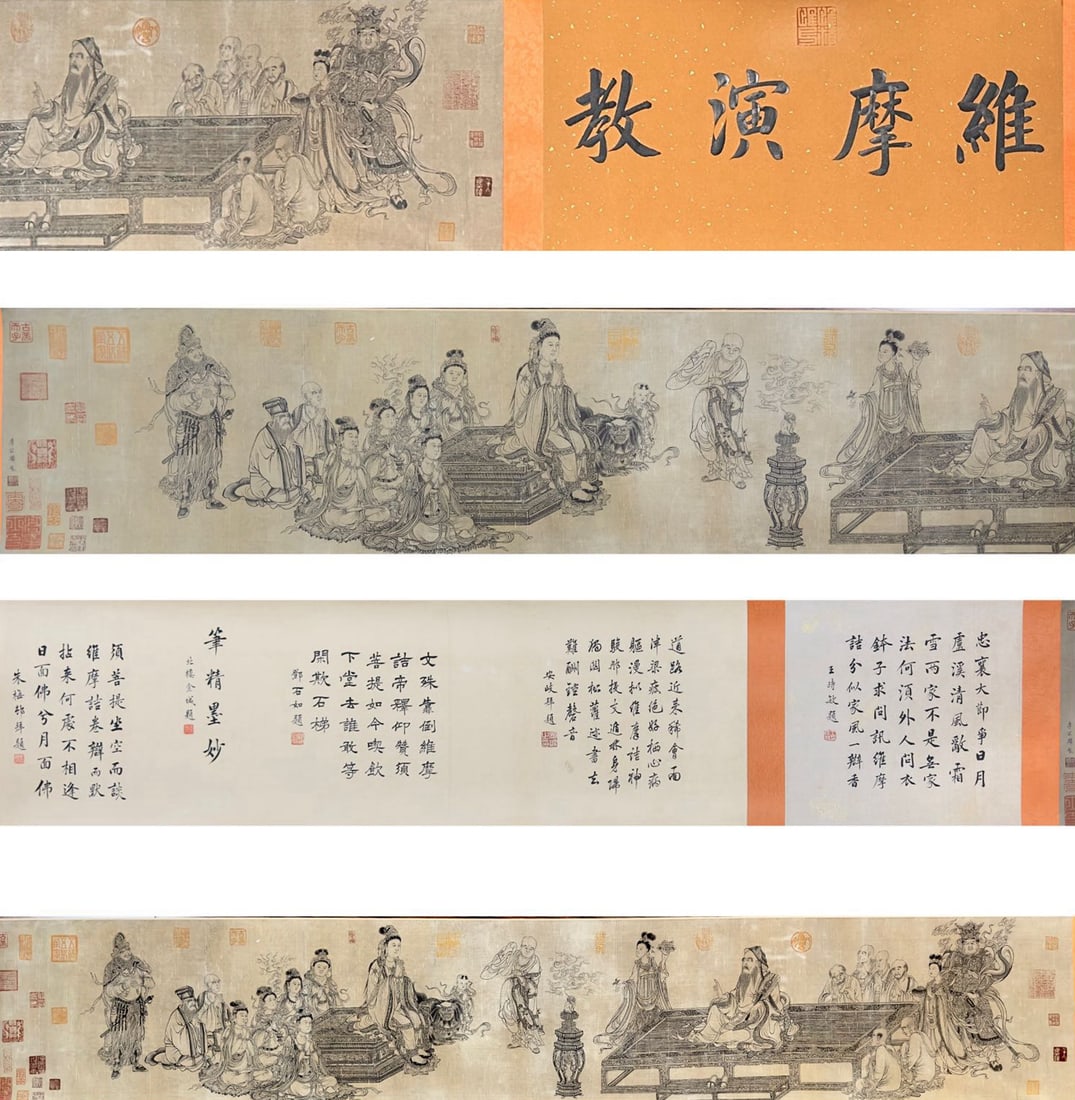 維摩演教
李公麟
忠襄大節爭日月
盧溪清風敵霜
雪兩家不是無家
法何須外人問衣
鉢子求問訊維摩
詰分似家風一瓣香
王時敏題
道路近来稀會面
津梁疲絕栖心病
軀漫擬維摩詰神
駿那提文身
獨閉松蘿述書去
難酬鐘磬音
安岐拜題
文殊靠倒維摩
詰帝釋仰贊須
菩提如今喫飲
下堂去誰敢等
閑欺石梯
鄧石如題
筆精墨妙
北樓金城題
須菩提坐空而談
維摩詰卷辯而默
拈来何處不相逢
日面佛兮月面佛
朱梅邨拜題